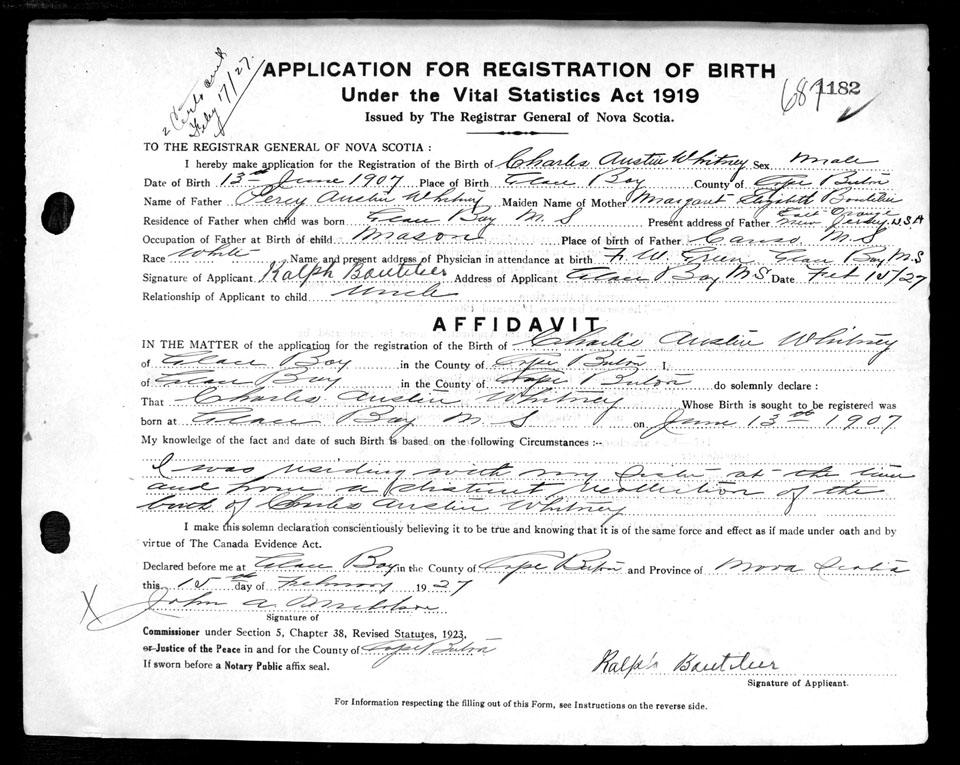 2 Certs sent
Feby 17/27.
APPLICATION FOR REGISTRATION OF BIRTH
687 1182
Under the Vital Statistics Act 1919
Issued by The Registrar General of Nova Scotia.
TO THE REGISTRAR GENERAL OF NOVA SCOTIA :
I hereby make application for the Registration of the Birth of Charles Austin Whitney Sex Male
Date of Birth 13th June 1907 Place of Birth Glace Bay County of Cape Breton
Name of Father Percy Austin Whitney Maiden Name of Mother Margaret Elizabeth Boutilier
Residence of Father when child was born Glace Bay N.S Present address of Father East Orange New Jersey U.S.A
Occupation of Father at Birth of child Mason Place of birth of Father Canso N.S
Race White Name and present address of Physician in attendance at birth F. W. Green Glace Bay N.S
Signature of Applicant Ralph Boutilier Address of Applicant Glace Bay N.S Date Feb 15/27
Relationship of Applicant to child Uncle
AFFIDAVIT
IN THE MATTER of the application for the registration of the Birth of Charlie Austin Whitney
of Glace Bay in the County of Cape Breton I,
of Glace Bay in the County of Cape Breton do solemnly declare :
That Charles Austin Whitney Whose Birth is sought to be registered was
born at Glace Bay N.S on June 13th 1907
My knowledge of the fact and date of such Birth is based on the following Circumstances :--
I was residing with my Sister at the time
and have a distinct recollection of the
birth of Charles Austin Whitney
I make this solemn declaration conscientiously believing it to be true and knowing that it is of the same force and effect as if made under oath and by
virtue of The Canada Evidence Act.
Declared before me at Glace Bay in the County of Cape Breton and Province of Nova Scotia
this 15th day of February 1927
X John A.
Signature of
Commissioner under Section 5, Chapter 38, Revised Statutes, 1923.
or Justice of the Peace in and for the County of Cape Breton
If sworn before a Notary Public affix seal.
Ralph Boutilier
Signature of Applicant.
For Information respecting the filling out of this Form, see Instructions on the reverse side.